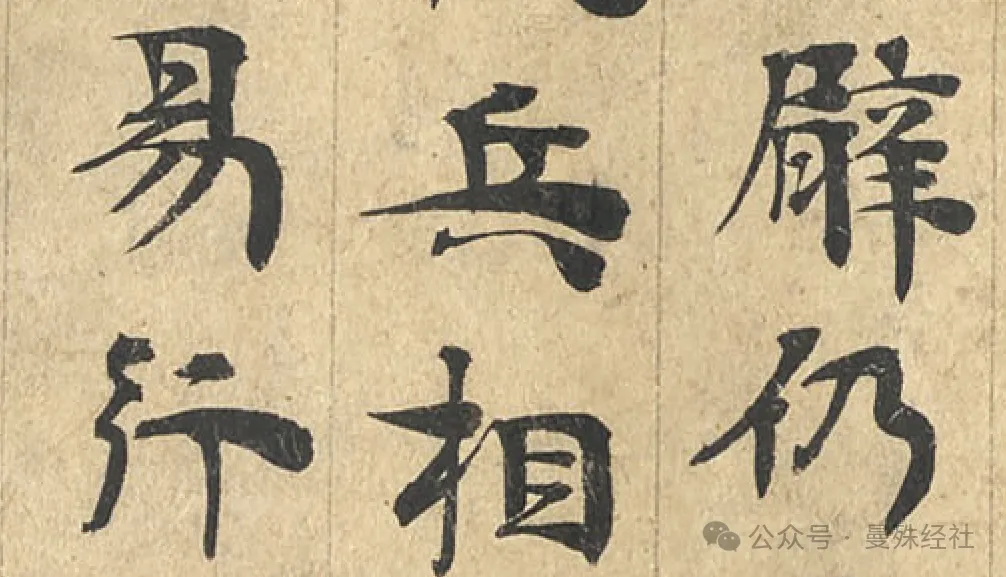 臂仍
兵相
易行
公众号 · 曼殊经社